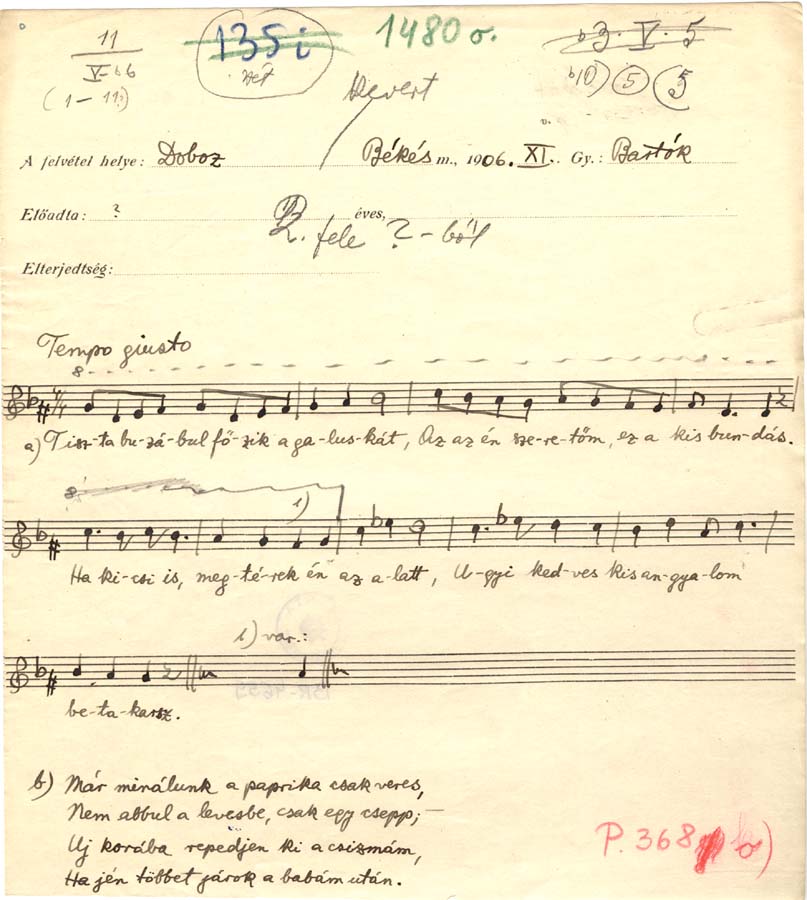 11
V-b6
(1-11)
135i
1480 o.
b3. V. 5
b10) 5 5
Kevert
A felvétel helye: Doboz Békés m., 1906. XI. Gy.: Bartók
Előadta: ? éves,
R. fele ?-ból
Elterjedtség:
Tempo giusto
8
4/4
a) Tisz-ta bu-zá-bul fő-zik a ga-lus-kát, Az az én sze-re-tőm, ez a kis bun-dás.
8
1)
Ha ki-csi is, meg-té-rek én az a-latt, U-gyi ked-ves kis an-gya-lom
1) var.:
be-ta-karsz.
b) Már minálunk a paprika csak veres,
Nem abbul a levesbe, csak egy csepp;—
Uj korába repedjen ki a csizmám,
Ha jén többet járok a babám után.
P. 368 a)